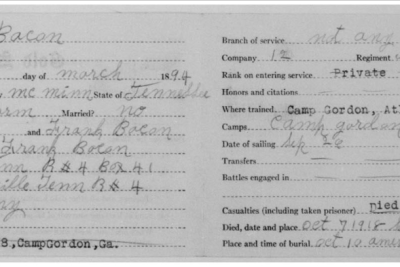 Bacan
day of march 1894
mc minn State of Tennessee
Married? no
and Frank Bacan
Frank Bacan
R # 4 Box 41
Tenn R # 4
8, CampGordon, Ga.
Branch of service not any
Company 12 Regiment
Rank on entering service Private
Honors and citations
Where trained Camp Gordon, Atl
Camps Camp gordon
Date of sailing Sep 26
Transfers
Battles engaged in
Casualties (including taken prisoner) Died
Died, date and place oct 7 1918
Place and time of burial oct 10